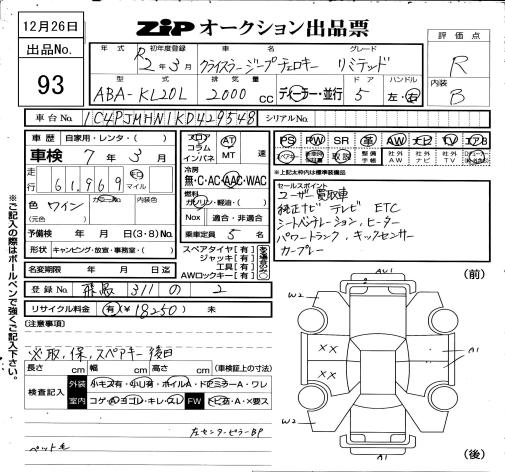 12月26日
ZIP オークション出品票
出品No.
93
評価点
R
内装
B
年式 初年度登録 車名 グレード
R2年3月 クライスラージープチェロキー リミテッド
型式 排気量 ドア ハンドル
ABA-KL20L 2000cc ディーラー・並行 5 左・右
車台No. 1C4PJMHN1KD429548 シリアルNo.
車歴 自家用・レンタ・( )
車検 7年3月
走行 61,969 km マイル
色 ワイン カラーNo. 内装色
(元色)
予備検 年 月 日(3・8)No.
形状 キャンピング・放宣・事務室・( )
名変期限 年 月 日迄
フロア コラム インパネ
AT MT 速
冷房
無・C・AC・AAC・WAC
燃料
ガソリン・軽油・( )
Nox 適合・非適合
乗車定員 5名
スペアタイヤ【有】
ジャッキ【有】
工具【有】
AWロックキー【有】
PS PW SR 革 AW ナビ TV エアB
取説 整備手帳 社外AW 社外ナビ 社外TV
※上記太枠内は標準装備品
セールスポイント
ユーザー買取車
純正ナビ テレビ ETC
シートベンチレーション、ヒーター
パワートランク、キックセンサー
カープレー
登録No. 311 の 2
リサイクル料金 有(¥18250) 未
(注意事項)
※取、保、スペアキー後日
長さ cm 幅 cm 高さ cm (車検証上の寸法)
検査記入
外装 小キズ有・小凹有・ホイルA・ドアミラーA・ワレ
室内 コゲ・穴・ヨゴレ・キレ・スレ FW トビ石・A・×要ス
左センターピラーBP
ペット毛
※ご記入の際はボールペンで強くご記入下さい。
(前)
AU1
W2
××
××
A1
W2
A1
(後)